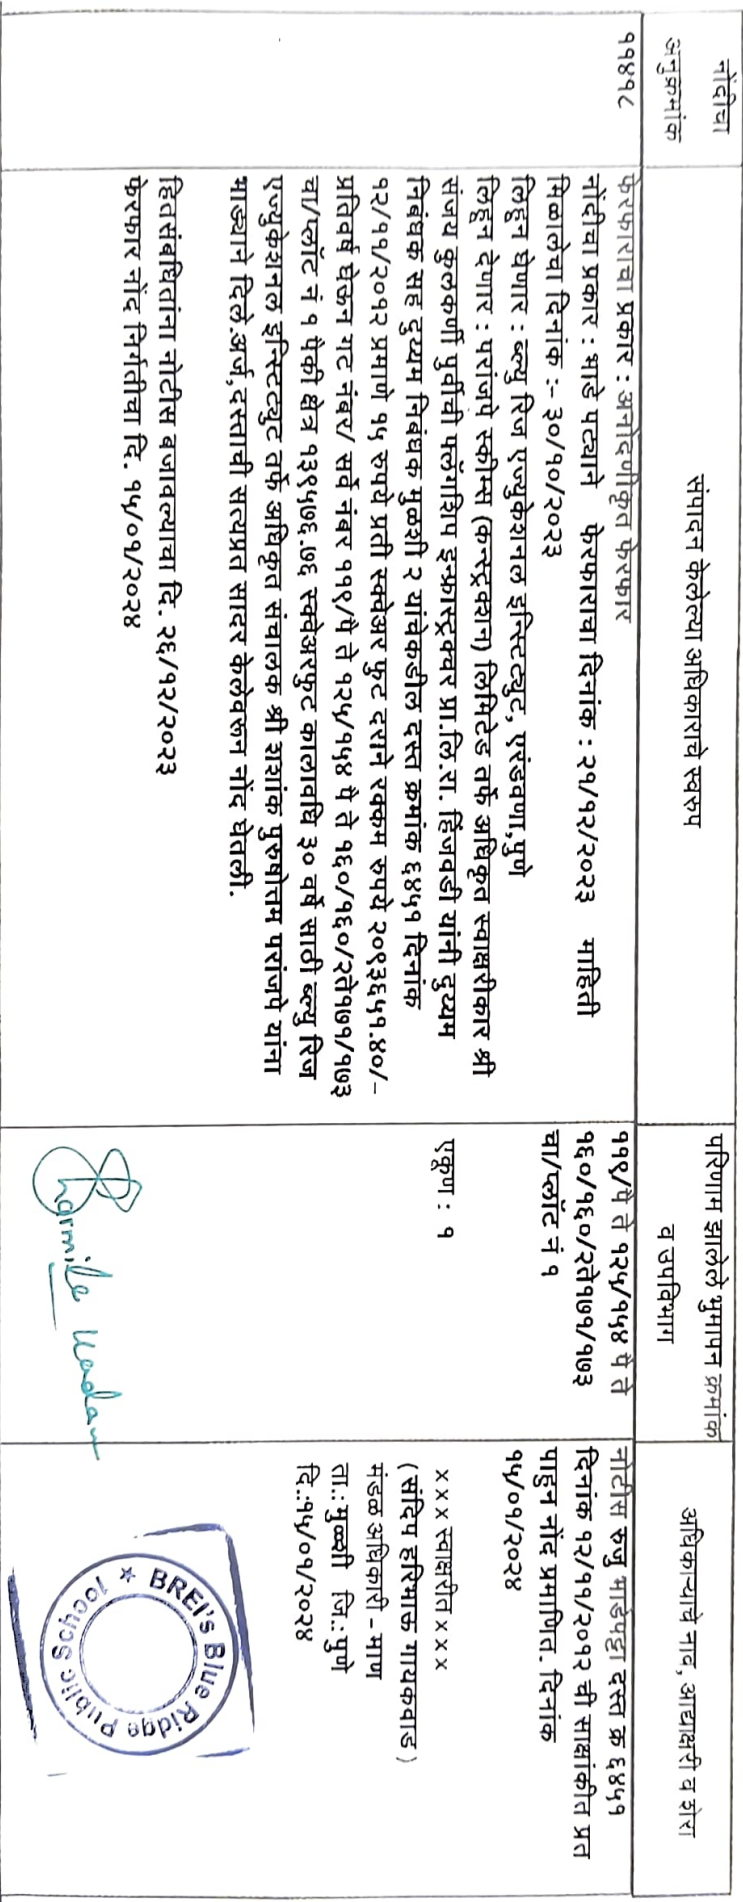 नोंदीचा
अनुक्रमांक
संपादन केलेल्या अधिकाराचे स्वरुप
परिणाम झालेले भुमापन क्रमांक
व उपविभाग
अधिकाऱ्याचे नाव, आद्याक्षरी व शेरा
११४१८
फेरफाराचा प्रकार : अनोंदणीकृत फेरफार
नोंदीचा प्रकार : भाडे पट्याने फेरफाराचा दिनांक : २१/१२/२०२३ माहिती
मिळालेचा दिनांक :- ३०/१०/२०२३
लिहुन घेणार : ब्ल्यु रिज एज्युकेशनल इन्स्टिट्युट, एरंडवणा,पुणे
लिहुन देणार : परांजपे स्कीम्स (कन्स्ट्रक्शन) लिमिटेड तर्फे अधिकृत स्वाक्षरीकार श्री
संजय कुलकर्णी पुर्वीची फ्लॅगशिप इन्फ्रास्ट्रक्चर प्रा.लि.रा. हिंजवडी यांनी दुय्यम
निबंधक सह दुय्यम निबंधक मुळशी २ यांचेकडील दस्त क्रमांक ६४५१ दिनांक
१२/११/२०१२ प्रमाणे १५ रुपये प्रती स्क्वेअर फुट दराने रक्कम रुपये २०९३६५१.४०/-
प्रतिवर्ष घेऊन गट नंबर/ सर्वे नंबर ११९/पै ते १२५/१५४ पै ते १६०/१६०/२ते१७१/१७३
चा/प्लॉट नं १ पैकी क्षेत्र १३९५७६.७६ स्क्वेअरफुट कालावधि ३० वर्षे साठी ब्ल्यु रिज
एज्युकेशनल इन्स्टिट्युट तर्फे अधिकृत संचालक श्री शशांक पुरुषोत्तम परांजपे यांना
भाड्याने दिले.अर्ज,दस्ताची सत्यप्रत सादर केलेवरून नोंद घेतली.
हितसंबंधितांना नोटीस बजावल्याचा दि. २६/१२/२०२३
फेरफार नोंद निर्गतीचा दि. १५/०१/२०२४
११९/पै ते १२५/१५४ पै ते
१६०/१६०/२ते१७१/१७३
चा/प्लॉट नं १
एकूण : १
नोटीस रुजु भाडेपट्टा दस्त क्र ६४५१
दिनांक १२/११/२०१२ ची साक्षांकीत प्रत
पाहुन नोंद प्रमाणित. दिनांक
१५/०१/२०२४
x x x स्वाक्षरीत x x x
(संदिप हरिभाऊ गायकवाड )
मंडळ अधिकारी - माण
ता.:मुळशी जि.:पुणे
दि.:१५/०१/२०२४
Sharmila Kadam
BREI's Blue Ridge Public School